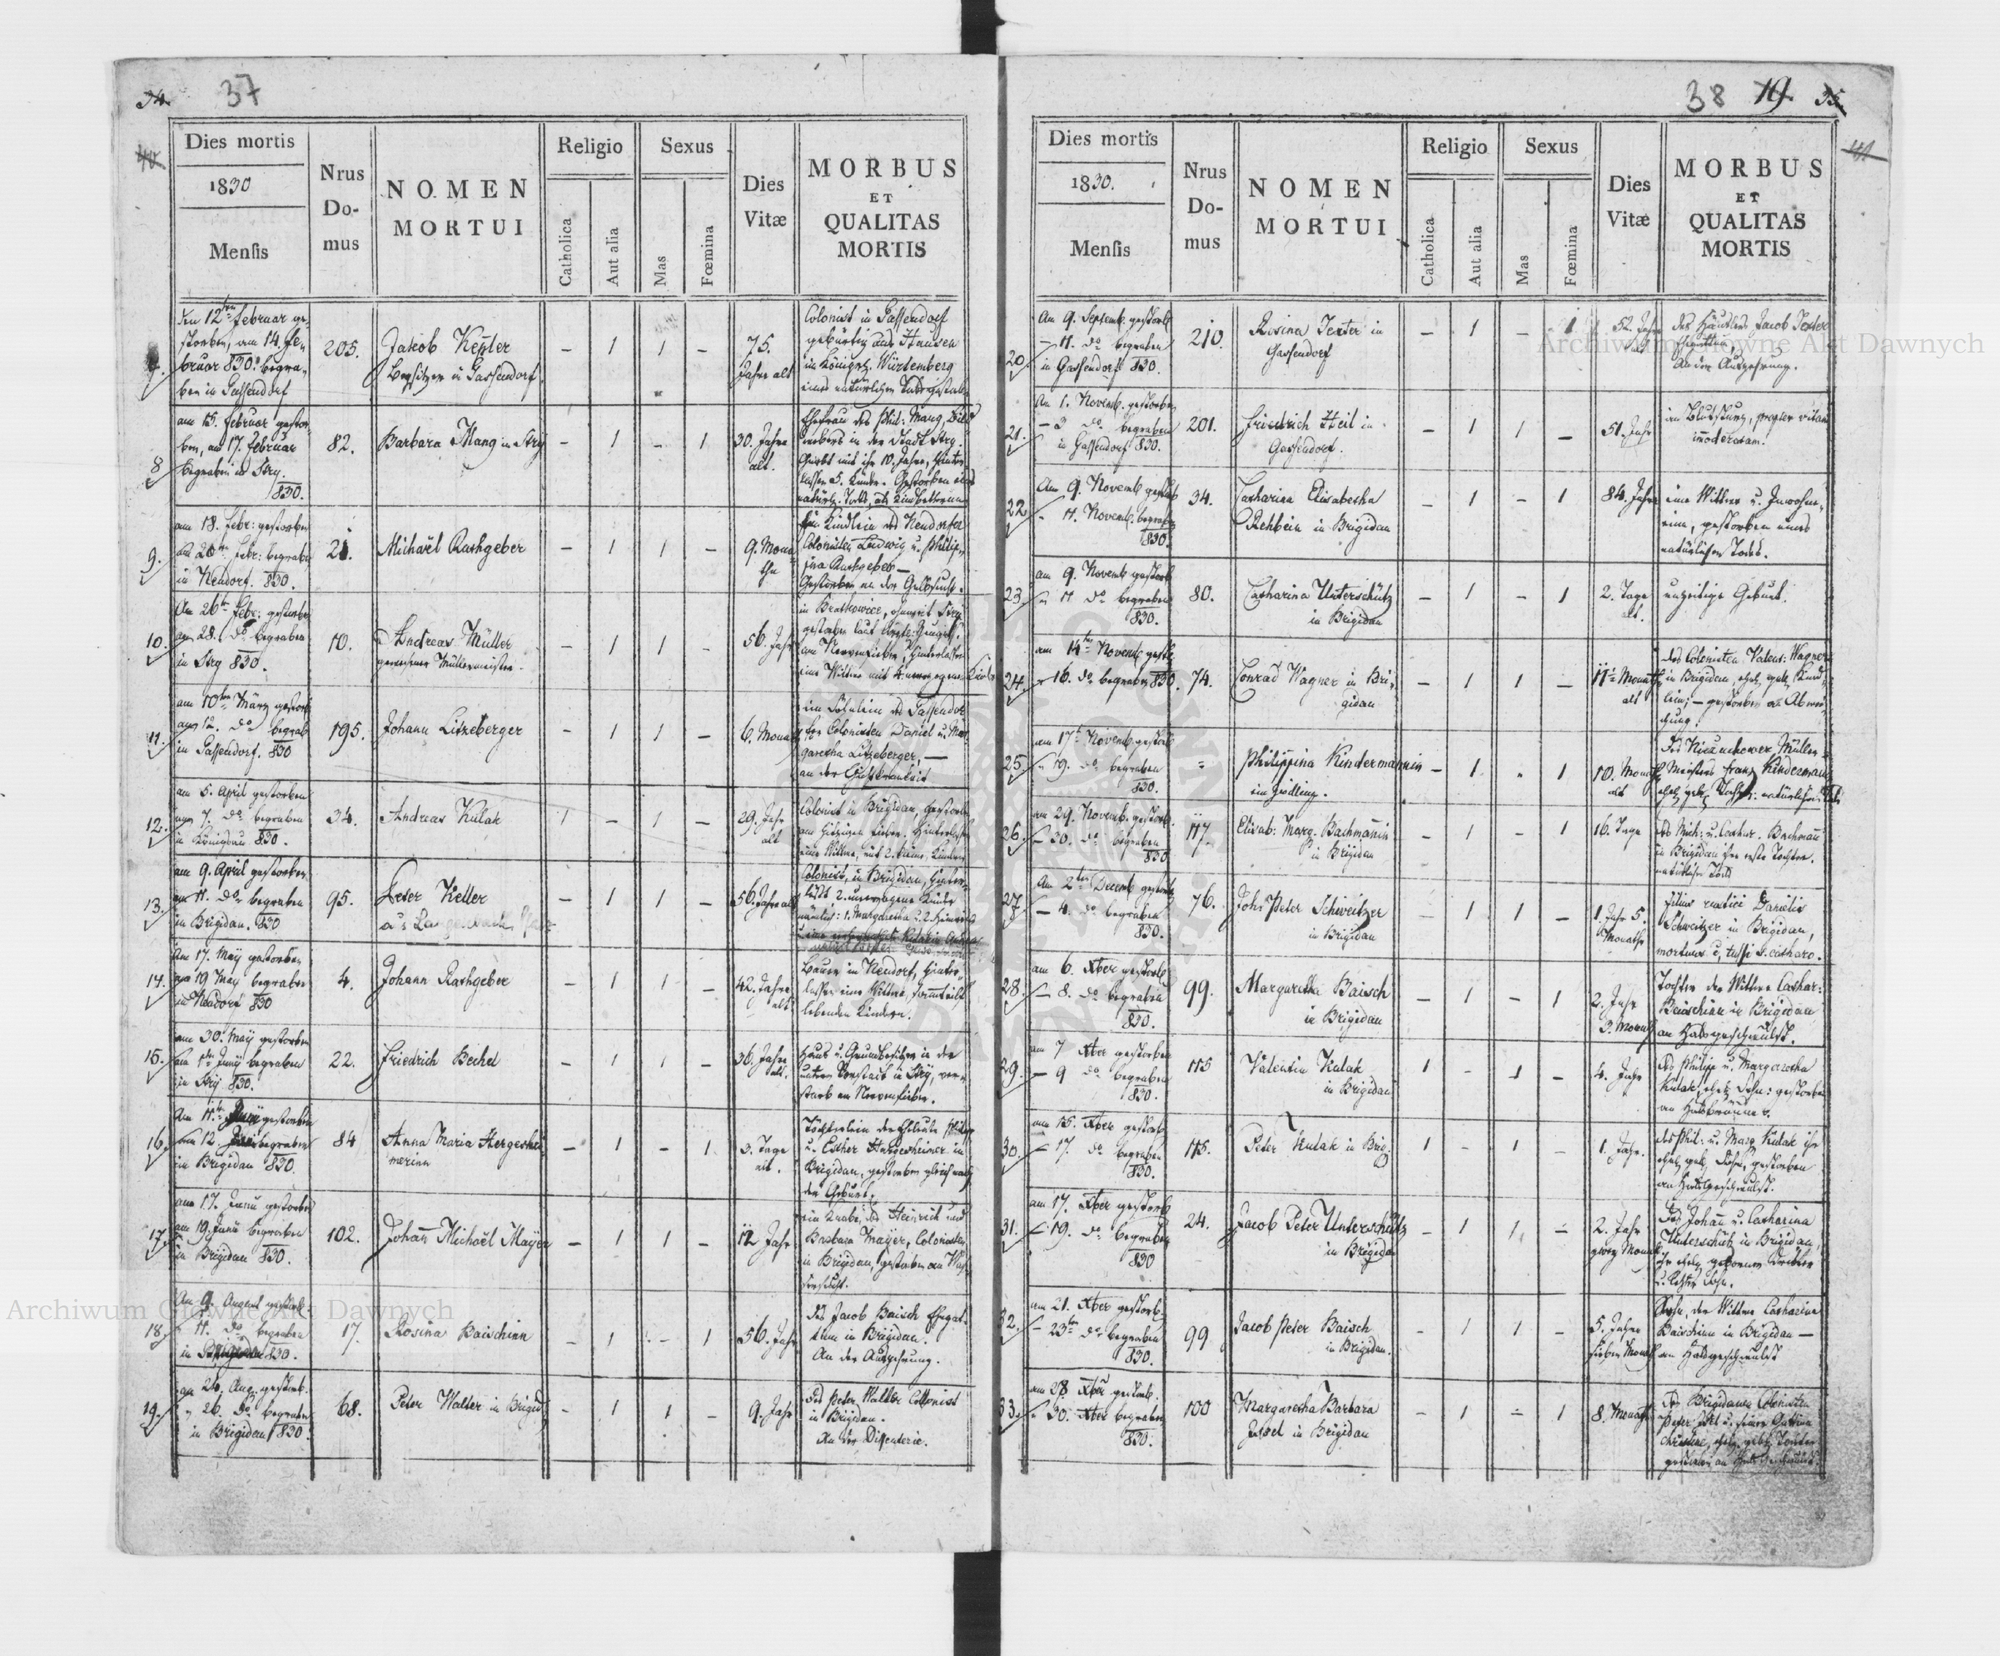 37
Dies mortis
1830
Mensis
Nrus
Do-
mus
NOMEN
MORTUI
Religio
Catholica
Aut alia
Sexus
Mas
Fœmina
Dies
Vitæ
MORBUS
ET
QUALITAS
MORTIS
Den 12ten Februar ge-
storben, am 14. Fe-
bruar 830. begra-
ben in Gassendorf
205.
Jakob Kepler
Besitzer in Gassendorf
– 1 1 –
75.
Jahre alt
Colonist in Gassendorf
gebürtig aus Hausen
im Königr. Würtemberg
8
am 15. Februar gestor-
ben, am 17. Februar
begraben in Stry.
830.
82.
Barbara Mang in Stry
– 1 – 1
30. Jahre
alt.
9.
am 18. Febr: gestorben
den 20ten Febr: begraben
in Neudorf. 830.
21.
Michaël Rathgeber
– 1 1 –
9. Mona-
the
Ein Kindlein des Neudorfer
Colonisten Ludwig u. Philip-
pina Rathgeber –
Gestorben an der Gelbsucht.
10.
Am 26ten Febr: gestorben
am 28. do begraben
in Stry 830.
10.
Andreas Müller
gewesener Müllermeister.
– 1 1 –
56. Jahr
11.
am 10ten März gestorb.
am 12. do begrab
in Gassendorf. 830
195.
Johann Litzeberger
– 1 1 –
6. Monat
ein Söhnlein des Gassendor-
fer Colonisten Daniel u. Mar-
garetha Litzeberger, –
12.
am 5. April gestorben
am 7. do begraben
in Königsau 830.
34.
Andreas Kulak
1 – 1 –
29. Jahr
alt
Colonist in Brigidau, gestorben
am hitzigen Fieber. Hinterlaßt
eine Wittwe, mit 2. kleine Kinder
13.
am 9. April gestorben
am 11. do begraben
in Brigidau. 830
95.
Peter Keller
– 1 1 –
56. Jahre alt
Colonist, in Brigidau, hinter-
läßt 2. unerzogene Kinder
nämlich: 1. Margaretha u. 2. Heinrich
14.
Am 17. May gestorben
am 19 May begraben
in Neudorf 830
4.
Johann Rathgeber
– 1 1 –
42. Jahre
alt
Bauer in Neudorf, hinter-
lassen eine Wittwe, sammt
lebenden Kindern.
15.
am 30. May gestorben
am 1ten Juny begraben
in Stry 830.
22.
Friedrich Bechel
– 1 1 –
36. Jahre
alt.
Haus u. Grundbesitzer in der
untern Vorstadt in Stry, ver-
starb am Nervenfieber.
16.
Am 11te Juny gestorben
am 12 begraben
in Brigidau 830.
84
Anna Maria Hergeshei-
merinn
– 1 – 1
3. Tage
alt.
Töchterlein der Eheleute Philipp
u. Esther Hergesheimer in
Brigidau, gestorben gleich nach
der Geburt.
17.
am 17. Juni gestorben
am 19. Juni begraben
in Brigidau 830.
102.
Johann Michaël Mayer
– 1 1 –
12 Jahr
ein Knabe, des Heinrich und
Barbara Mayer, Colonisten
in Brigidau, gestorben an Was-
sersucht.
18.
Am 9. August gestorb.
– 11. do begraben
in Brigidau 830.
17.
Rosina Baischinn
– 1 – 1
56. Jahr
des Jacob Baisch Ehegat-
tinn in Brigidau.
An der Auszehrung.
19.
am 24. Aug. gestorb.
– 26. do begraben
in Brigidau 830.
68.
Peter Walter in Brigid.
– 1 1 –
9. Jahr
des Peter Walter Collonist
in Brigidau.
An der Dissenterie.
38 19. 35
Dies mortis
1830.
Mensis
Nrus
Do-
mus
NOMEN
MORTUI
Religio
Catholica
Aut alia
Sexus
Mas
Fœmina
Dies
Vitæ
MORBUS
ET
QUALITAS
MORTIS
20.
Am 9. Septemb. gestorb.
– 11. do begraben
in Gassendorf 830.
210.
Rosina Texter in
Gassendorf
– 1 – 1
52. Jahr
alt
des Jacob Texter
An der Auszehrung.
21.
Am 1. Novemb. gestorben
– 3 do begraben
in Gassendorf 830.
201.
Friedrich Heil in
Gassendorf.
– 1 1 –
51. Jahr
am Blutsturz, propter vitam
imoderatam.
22
Am 9. Novemb gestorb
– 11. Novemb. begraben
830.
34.
Catharina Elisabetha
Rehbein in Brigidau
– 1 – 1
84. Jahre
eine Wittwe u. Inwohne-
rinn, gestorben eines
natürlichen Todes.
23.
am 9. Novemb gestorb
– 11 do begraben
830.
80.
Catharina Unterschütz
in Brigidau
– 1 – 1
2. Tage
alt.
unzeitige Geburt.
24.
am 14ten Novemb gestb.
– 16. do begraben 830.
74.
Conrad Wagner in Bri-
gidau
– 1 1 –
11 Monath
alt
des Colonisten Valent: Wagner
in Brigidau, ehel. geb. Kind-
lein; – gestorben an Abwei-
chung.
25.
am 17t Novemb. gestorb
– 19. do begraben
830.
Philippina Kindermannin
– 1 – 1
10. Monath
alt
26.
am 29. Novemb. gestorb.
– 30. do begraben
830
117.
Elisab: Marg. Bachmañin
in Brigidau
– 1 – 1
16. Tage
des Mich: u. Cathar. Bachmañ
in Brigidau
27.
Am 2ten Decemb gestorb
– 4. do begraben
830.
76.
Johs Peter Schweitzer
in Brigidau
– 1 1 –
1. Jahr 5.
Monathe
filius rustici Danielis
Schweitzer in Brigidau,
mortuus e tussi s. catharo.
28.
am 6. Xber gestorb
– 8. do begraben
830.
99.
Margaretha Baisch
in Brigidau
– 1 – 1
2. Jahr
3. Monath
Tochter der Wittwe Cathar:
Baischinn in Brigidau,
an Halsgeschwulst.
29.
am 7 Xber gestorben
– 9 do begraben
830.
115
Valentin Kulak
in Brigidau
1 – 1 –
4. Jahr
des Philipp u. Margaretha
Kulak, ehel. Sohn: gestorben
an Halsbräune.
30.
am 15. Xber gestorb
– 17. do begraben
830.
115.
Peter Kulak in Brig.
1 – 1 –
1. Jahr.
des Phil: u. Marg Kulak ihr
ehel. geb. Sohn, gestorben
an Halsgeschwulst.
31.
am 17. Xber gestorb
– 19. do begraben
830
24.
Jacob Peter Unterschütz
in Brigidau
– 1 1 –
2. Jahr
zwey Monath
des Johañ u. Catharina
Unterschütz in Brigidau,
ihr ehel. geborner dritter
u. letzter Sohn.
32.
am 21. Xber gestorb.
– 23ten do begraben
830.
99
Jacob Peter Baisch
in Brigidau.
– 1 1 –
5. Jahre
sieben Monath
Sohn, der Wittwe Catharina
Baischinn in Brigidau –
an Halsgeschwulst
33.
am 28 Xber gestorb.
– 30. Xber begraben
830.
100
Margaretha Barbara
Jusel in Brigidau
– 1 – 1
8. Monath
des Brigidauer Colonisten
Archiwum Główne Akt Dawnych
Archiwum Główne Akt Dawnych